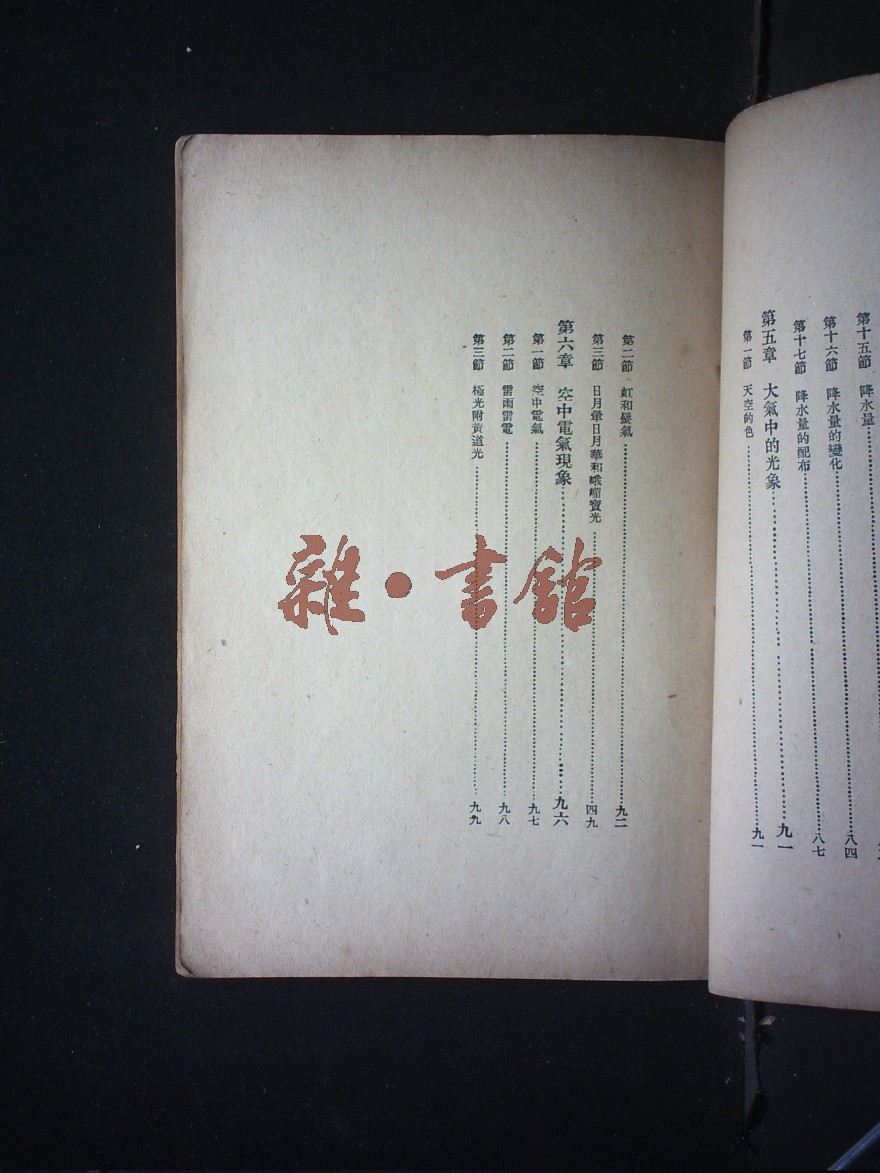 第十五節 降水量
第十六節 降水量的變化 八四
第十七節 降水量的配布 八七
第五章 大氣中的光象 九一
第一節 天空的色 九一
第二節 虹和蜃氣 九二
第三節 日月暈日月華和峨嵋寶光 四九
第六章 空中電氣現象 九六
第一節 空中電氣 九七
第二節 雷雨雷電 九八
第三節 極光附黃道光 九九
雜·書館